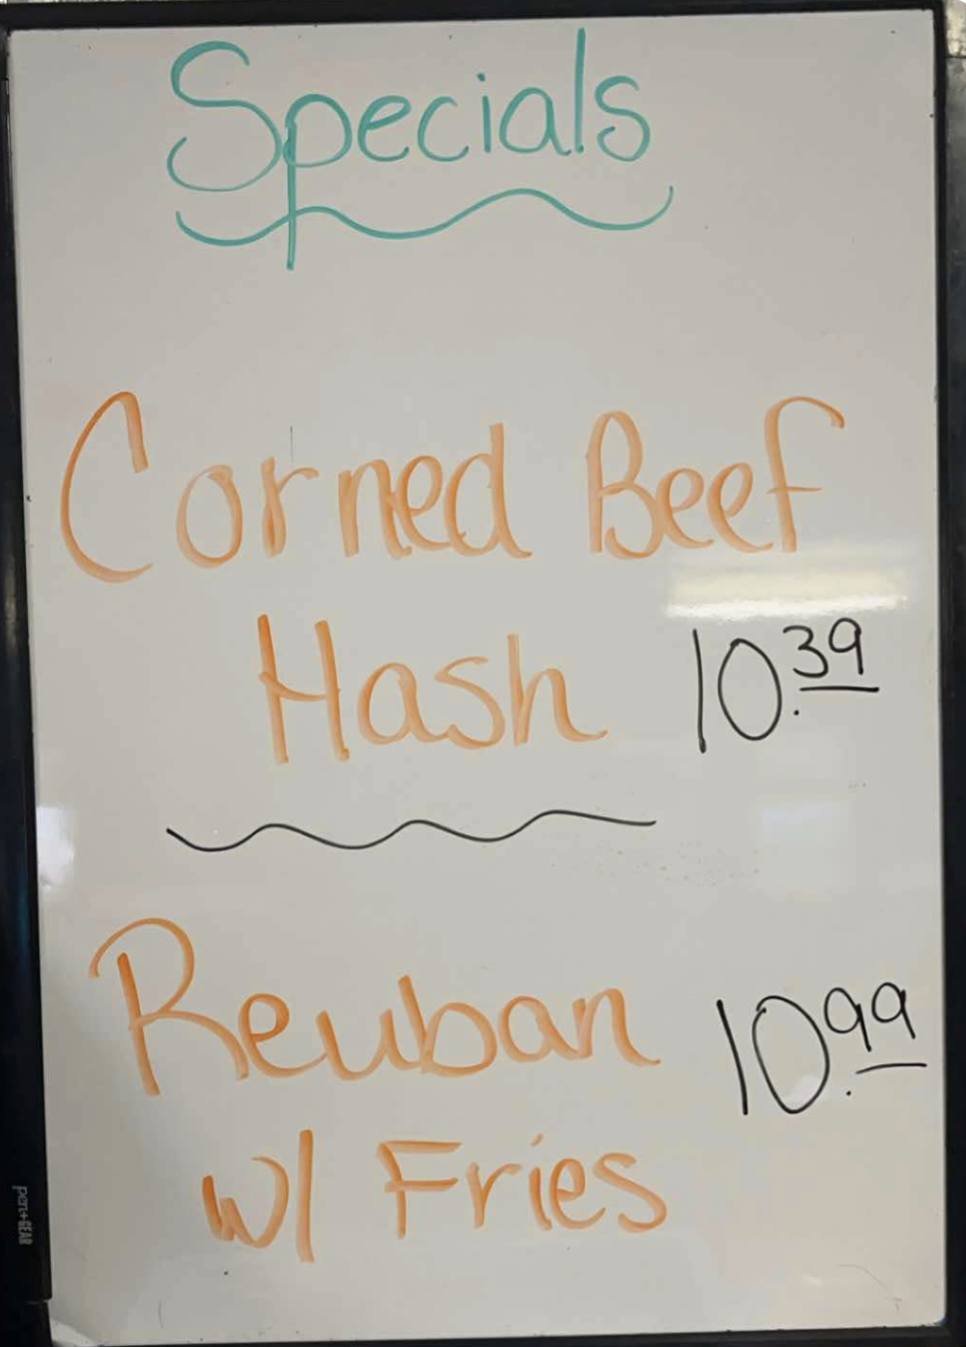 Specials
Corned Beef
Hash 10.39
Reuban 10.99
w/ Fries
pen+GEAR